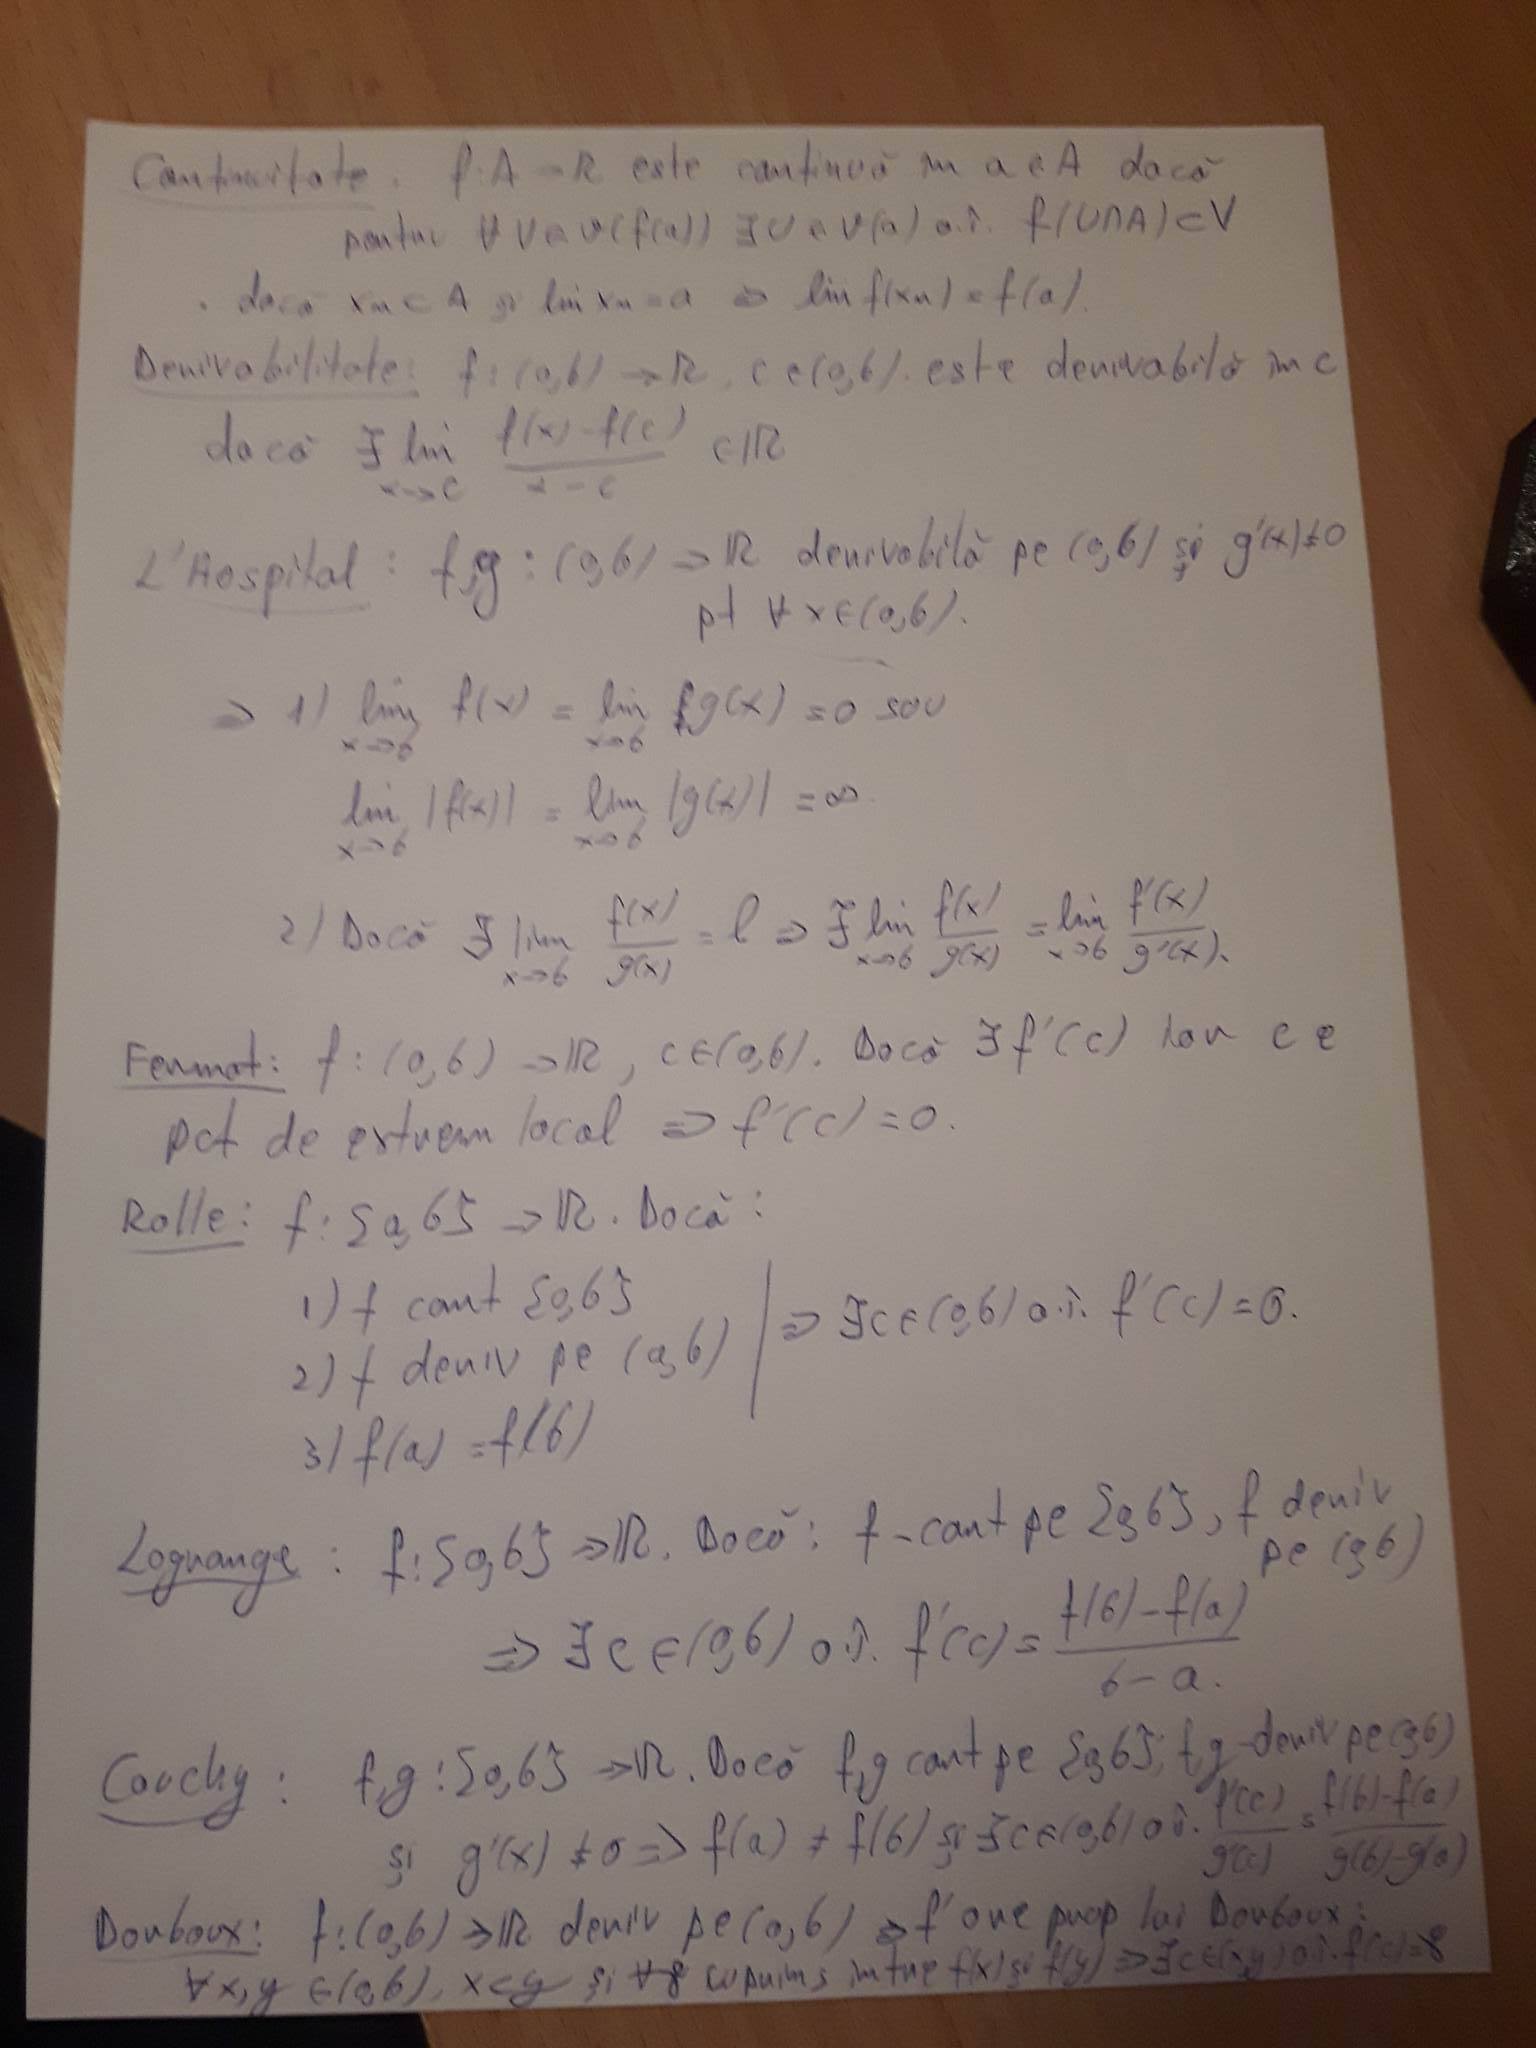 Continuitate. f:A→R este continuă în a∈A dacă
pentru ∀V∈𝒱(f(a)) ∃U∈𝒱(a) a.î. f(U∩A)⊂V
. dacă xn⊂A și lim xn=a ⇒ lim f(xn)=f(a).
Derivabilitate: f:(a,b)→R, c∈(a,b). este derivabilă în c
dacă ∃ lim x→c (f(x)-f(c))/(x-c) ∈ℝ
L'Hospital: f,g:(a,b)→ℝ derivabilă pe (a,b) și g'(x)≠0
pt ∀x∈(a,b).
⇒ 1) lim x→b f(x) = lim x→b g(x) = 0 sau
lim x→b |f(x)| = lim x→b |g(x)| = ∞.
2) Dacă ∃ lim x→b f(x)/g(x) = l ⇒ ∃ lim x→b f(x)/g(x) = lim x→b f'(x)/g'(x).
Fermat: f:(a,b)→ℝ, c∈(a,b). Dacă ∃f'(c) iar c e
pct de extrem local ⇒ f'(c)=0.
Rolle: f:[a,b]→ℝ. Dacă:
1) f cont [a,b]
2) f deriv pe (a,b) | ⇒ ∃c∈(a,b) a.î. f'(c)=0.
3) f(a)=f(b)
Lagrange: f:[a,b]→ℝ. Dacă: f-cont pe [a,b], f deriv
pe (a,b)
⇒ ∃c∈(a,b) a.î. f'(c)= (f(b)-f(a))/(b-a).
Cauchy: f,g:[a,b]→ℝ. Dacă f,g cont pe [a,b]; f,g-deriv pe (a,b)
și g'(x)≠0 ⇒ f(a)≠f(b) și ∃c∈(a,b) a.î. f'(c)/g'(c) = (f(b)-f(a))/(g(b)-g(a))
Darboux: f:(a,b)→ℝ deriv pe (a,b) ⇒ f' are prop lui Darboux:
∀x,y∈(a,b), x<y și ∀γ cuprins între f(x) și f(y) ⇒ ∃c∈(x,y) a.î. f(c)=γ